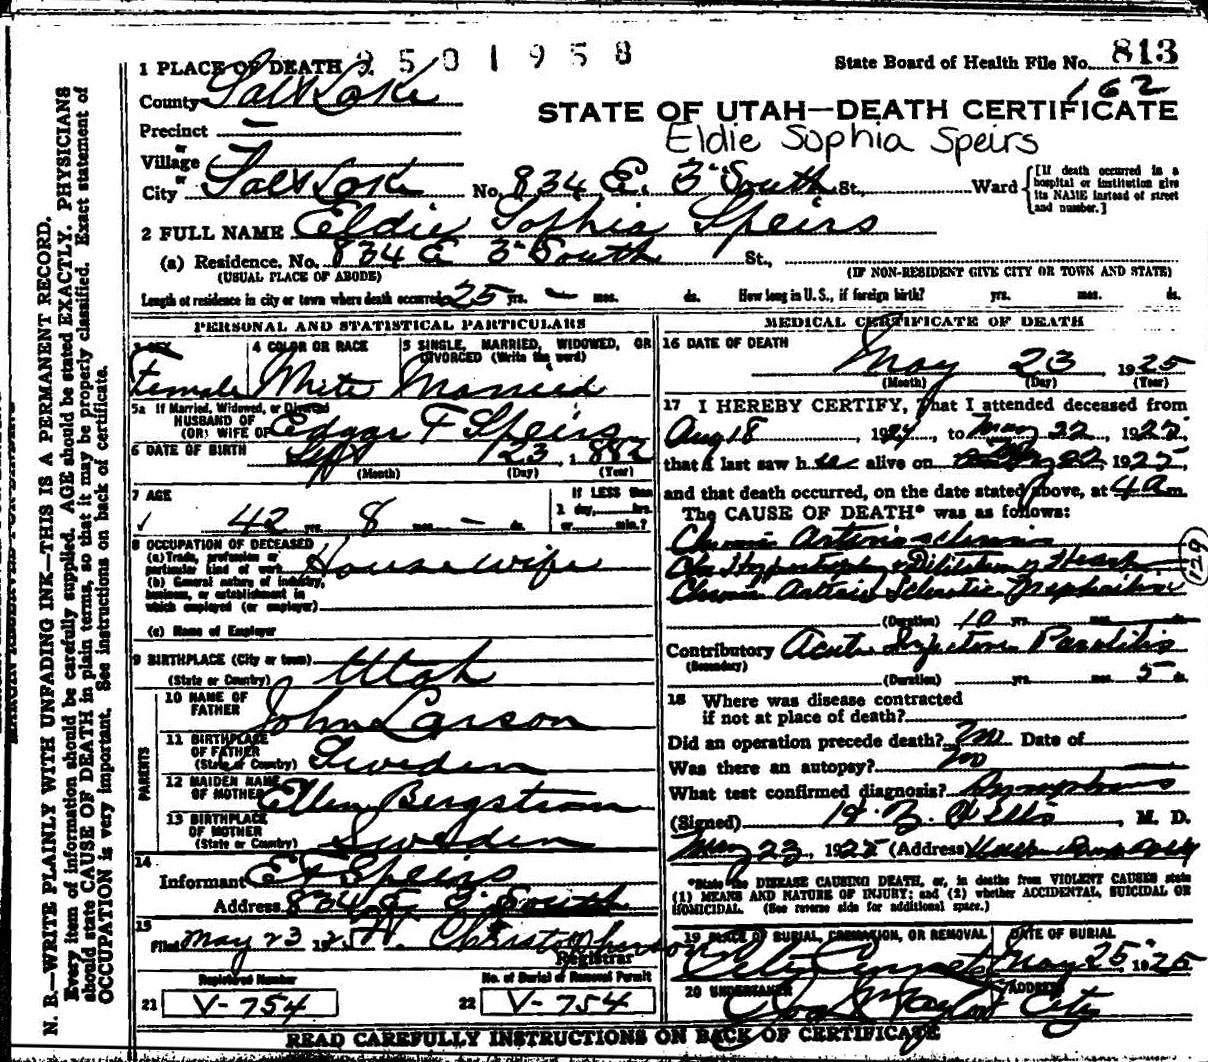 3501958
State Board of Health File No. 813
162
1 PLACE OF DEATH
County Salt Lake
STATE OF UTAH—DEATH CERTIFICATE
Precinct
Eldie Sophia Speirs
or
Village
or
City Salt Lake No. 834 E. 3 South St., Ward [If death occurred in a hospital or institution give its NAME instead of street and number.]
2 FULL NAME Eldie Sophia Speirs
(a) Residence. No. 834 E 3 South St.,
(USUAL PLACE OF ABODE) (IF NON-RESIDENT GIVE CITY OR TOWN AND STATE)
Length of residence in city or town where death occurred 25 yrs. — mos. ds. How long in U.S., if foreign birth? yrs. mos. ds.
PERSONAL AND STATISTICAL PARTICULARS
3 SEX 4 COLOR OR RACE 5 SINGLE, MARRIED, WIDOWED, OR DIVORCED (Write the word)
Female White Married
5a If Married, Widowed, or Divorced
HUSBAND OF
(OR) WIFE OF Edgar F Speirs
6 DATE OF BIRTH Sept 23, 1882
(Month) (Day) (Year)
7 AGE If LESS than
1 day, hrs.
42 yrs. 8 mos. — ds. or min.?
8 OCCUPATION OF DECEASED
(a) Trade, profession or particular kind of work Housewife
(b) General nature of industry, business, or establishment in which employed (or employer)
(c) Name of Employer
9 BIRTHPLACE (City or town)
(State or Country) Utah
PARENTS
10 NAME OF FATHER John Larson
11 BIRTHPLACE OF FATHER
(State or Country) Sweden
12 MAIDEN NAME OF MOTHER Ellen Bergstrom
13 BIRTHPLACE OF MOTHER
(State or Country) Sweden
14
Informant E F Speirs
Address 834 E 3 South
15
Filed May 23 1925 Christopherson
Registrar
Registered Number No. of Burial or Removal Permit
21 V-754 22 V-754
MEDICAL CERTIFICATE OF DEATH
16 DATE OF DEATH
May 23 1925
(Month) (Day) (Year)
17 I HEREBY CERTIFY, That I attended deceased from
Aug 18, 1924, to May 22, 1925,
that I last saw her alive on May 22, 1925,
and that death occurred, on the date stated above, at 4 a m.
The CAUSE OF DEATH* was as follows:
Chronic Arteriosclerosis
Chr Hypertrophy & Dilitation of Heart
Chronic Arterio Sclerotic Nephritis
129
(Duration) 10 yrs. mos. ds.
Contributory Acute Infection Parotitis
(Secondary)
(Duration) yrs. mos. 5 ds.
18 Where was disease contracted
if not at place of death?
Did an operation precede death? No Date of
Was there an autopsy? no
What test confirmed diagnosis? Symptoms
(Signed) M. D.
May 23, 1925 (Address)
*State the DISEASE CAUSING DEATH, or, in deaths from VIOLENT CAUSES state
(1) MEANS AND NATURE OF INJURY; and (2) whether ACCIDENTAL, SUICIDAL OR
HOMICIDAL. (See reverse side for additional space.)
19 PLACE OF BURIAL, CREMATION, OR REMOVAL DATE OF BURIAL
City Cemetery May 25 1925
20 UNDERTAKER ADDRESS
Taylor City
READ CAREFULLY INSTRUCTIONS ON BACK OF CERTIFICATE
N. B.—WRITE PLAINLY WITH UNFADING INK—THIS IS A PERMANENT RECORD.
Every item of information should be carefully supplied. AGE should be stated EXACTLY. PHYSICIANS
should state CAUSE OF DEATH in plain terms, so that it may be properly classified. Exact statement of
OCCUPATION is very important. See instructions on back of certificate.